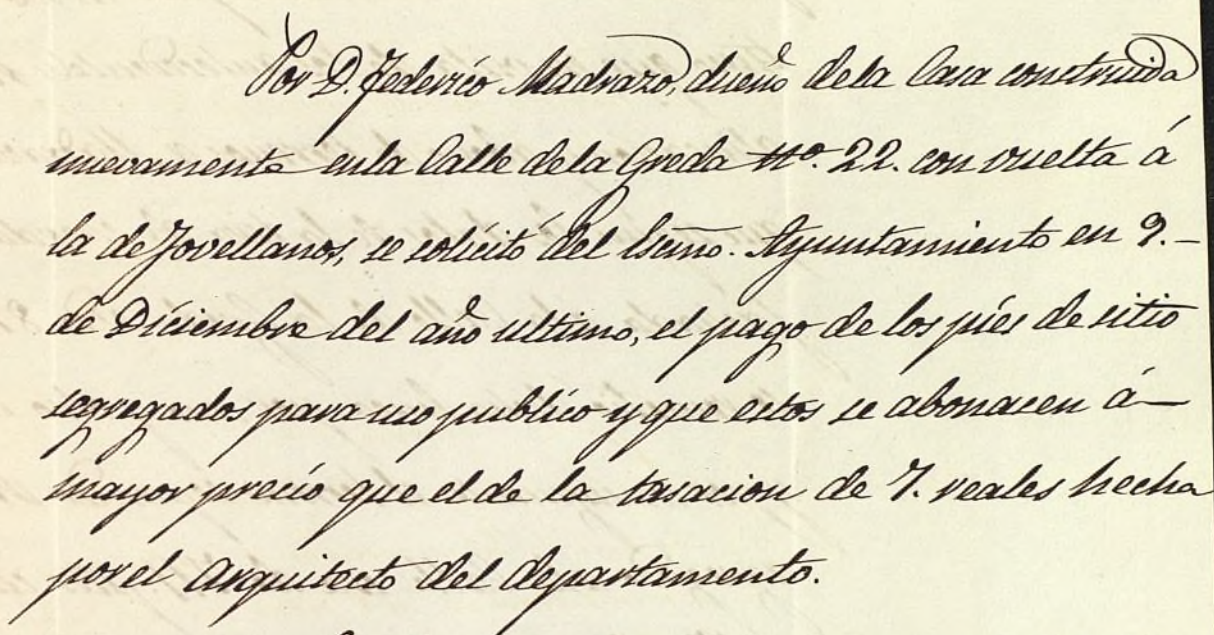 Por D. Federico Madrazo, dueño dela Casa construida
nuevamente enla Calle dela Greda Nº. 22. con vuelta á
la de Jovellanos, se solicitó del Escmo. Ayuntamiento en 9.-
de Diciembre del año ultimo, el pago de los piés de sitio
segregados para uso publico y que estos se abonasen á-
mayor precio que el de la tasacion de 7. reales hecha
por el Arquitecto del departamento.